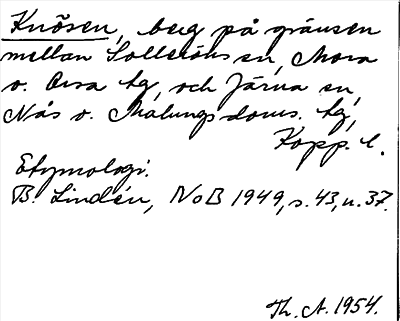 Knõsen, berg på gränsen
mellan Solleröns sn, Mora
o. Orsa tg, och Järna sn,
Nås o. Malungs doms. tg,
Kopp. l.
Etymologi.
B. Lindén, NoB 1949, s. 43, n. 37.
Th. A. 1954.